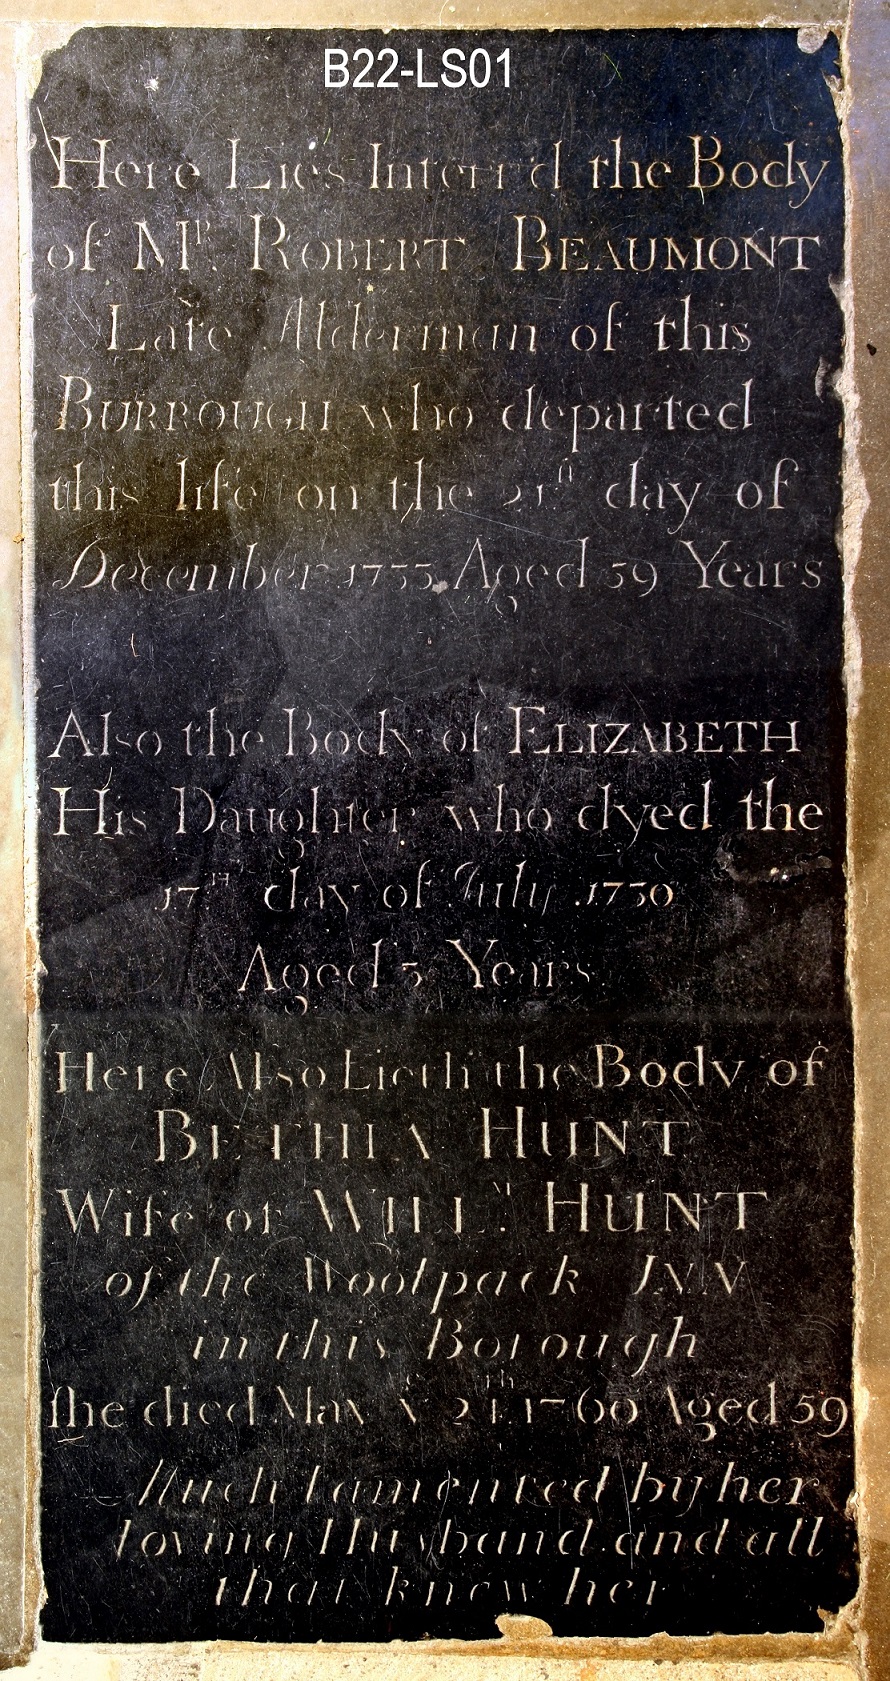 B22-LS01
Here Lies Interr'd the Body
of Mr. ROBERT BEAUMONT
Late Alderman of this
BURROUGH who departed
this life on the 21st day of
December 1735 Aged 39 Years
Also the Body of ELIZABETH
His Daughter who dyed the
17TH day of July 1730
Aged 3 Years
Here Also Lieth the Body of
BETHIA HUNT
Wife of WILLM. HUNT
of the Woolpack INN
in this Borough
ſhe died May ye 24th 1760 Aged 59
Much lamented by her
loving Husband and all
that knew her